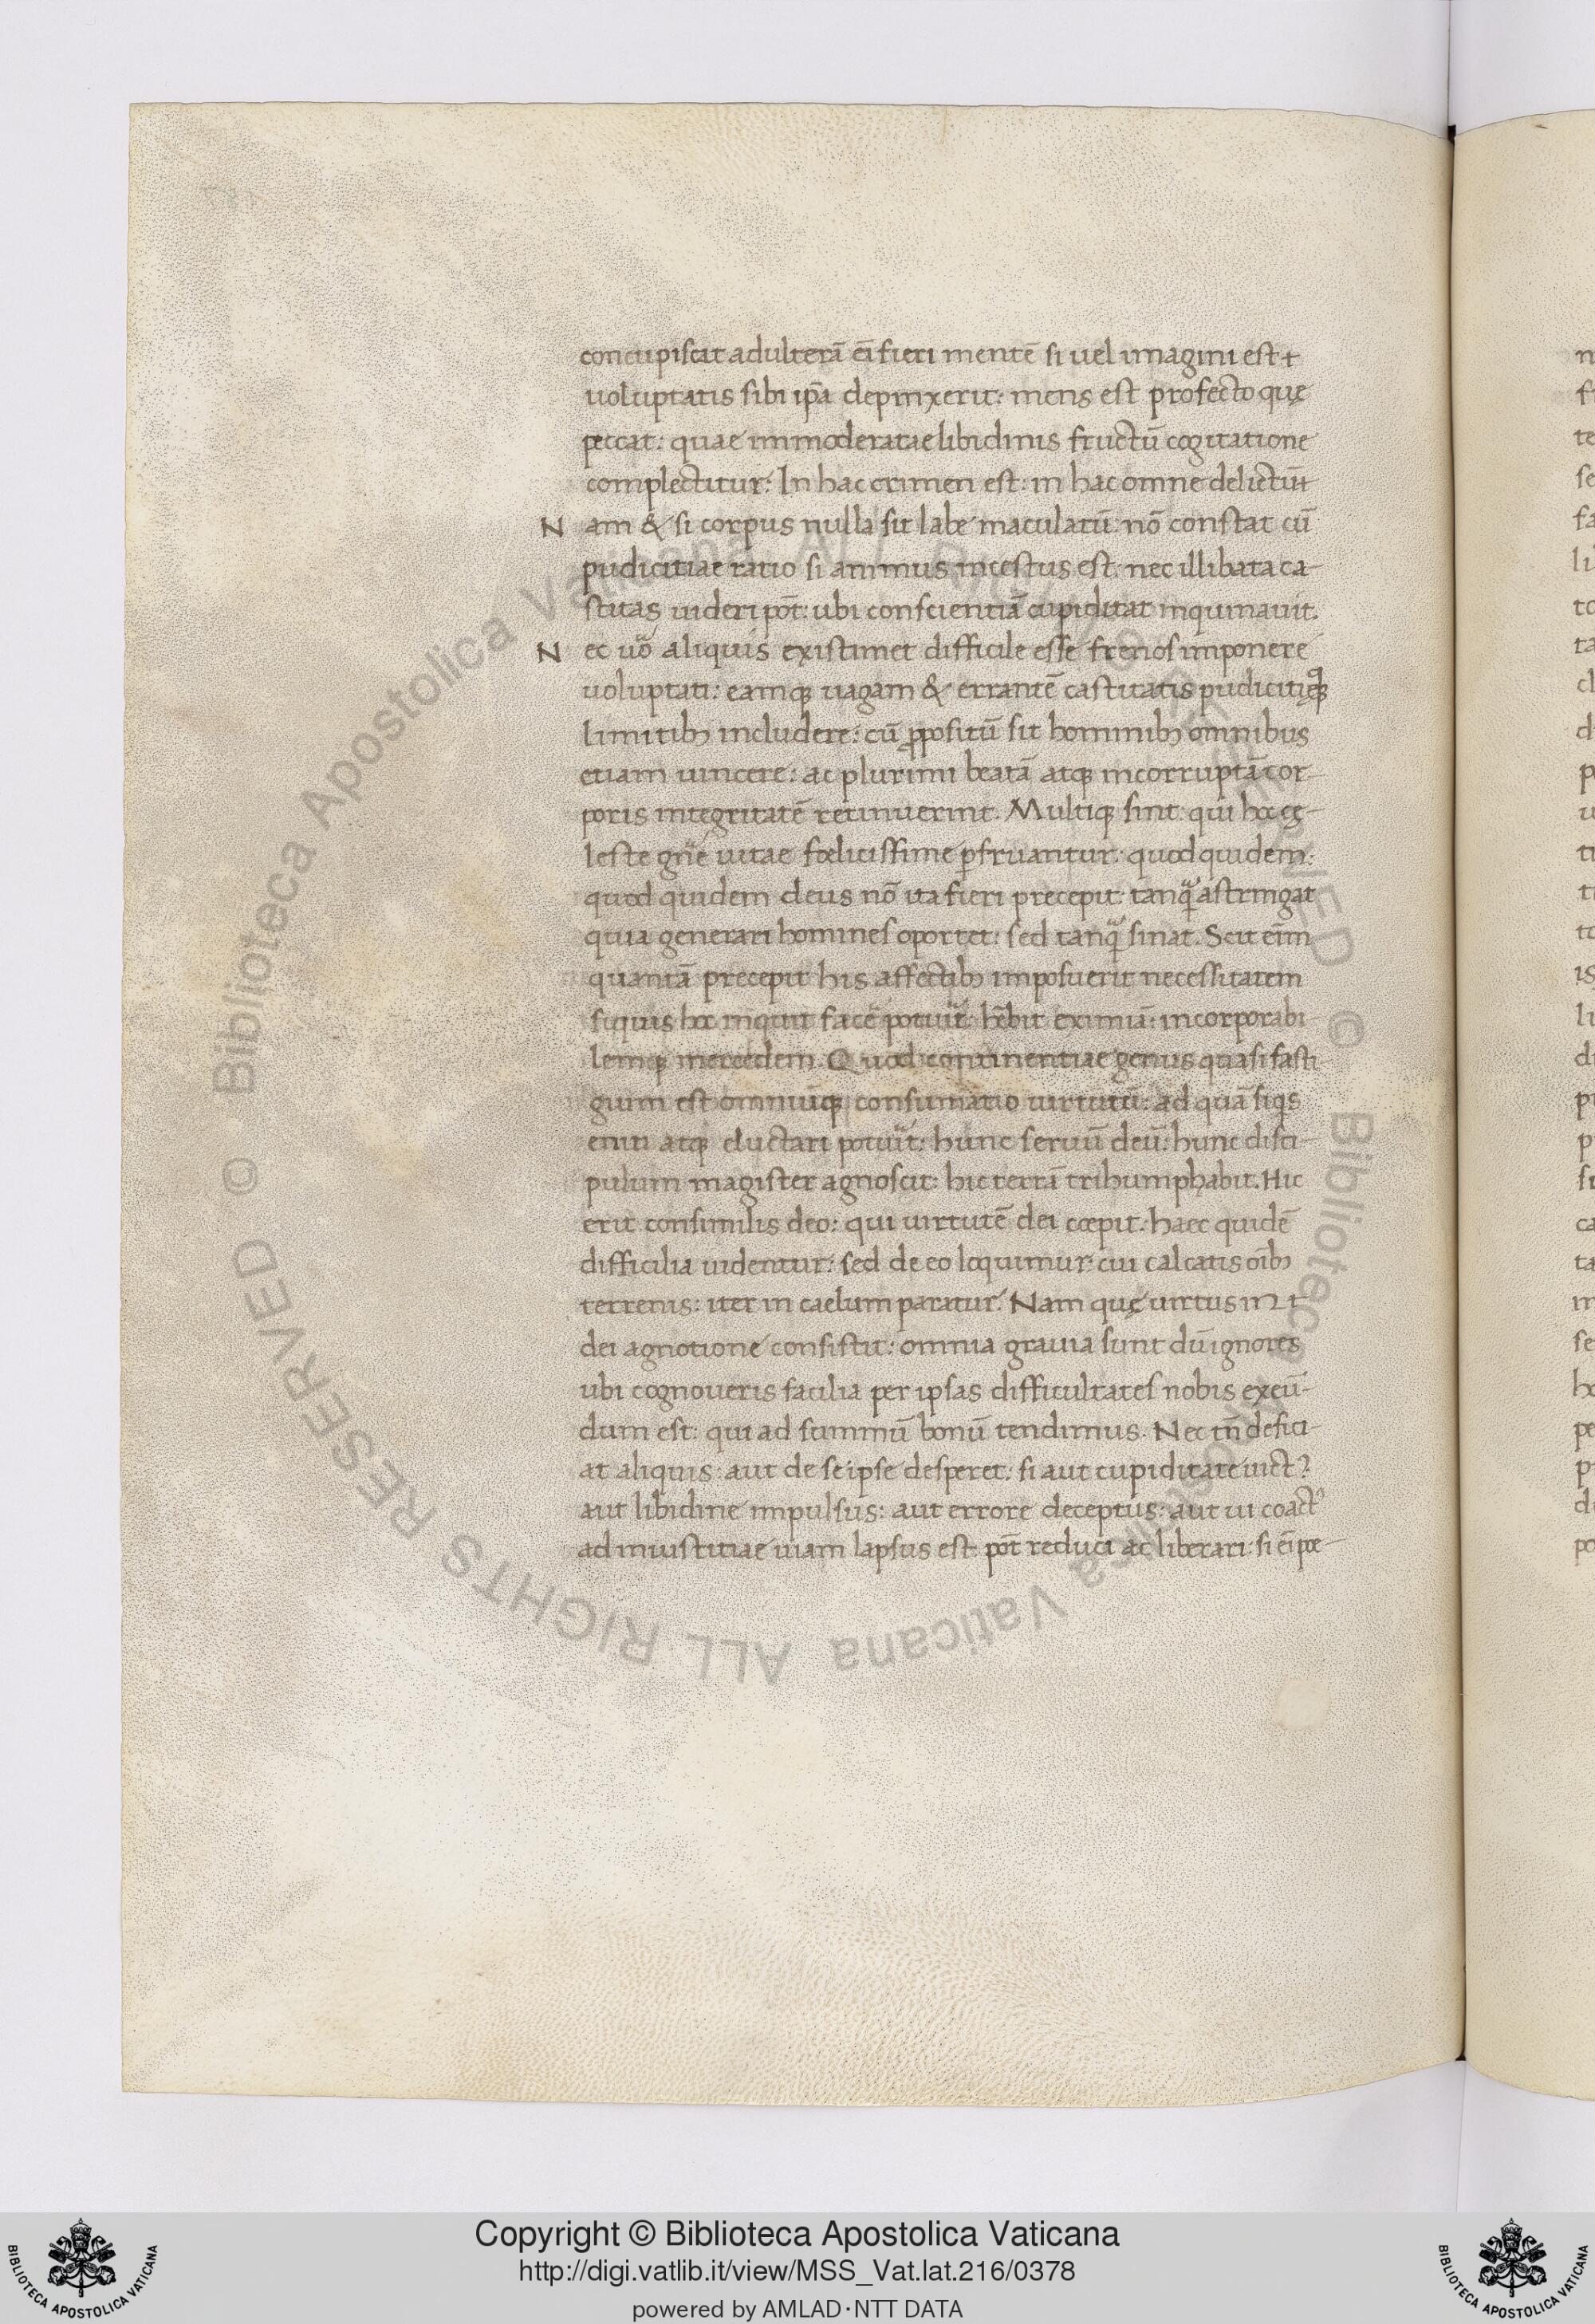 concupiscat adulterā ēi fieri mentē si uel imagini est +
uoluptatis sibi ip̄a depinxerit: mens est profecto quę
peccat: quae immoderatae libidinis fructū cogitatione
complectitur: In hac crimen est: in hac omne delictū +
N am & si corpus nulla sit labe maculatū: nō constat cū
pudicitiae ratio si animus incestus est: nec illibata ca-
stitas uideri pōt: ubi conscientiā cupiditat inquinauit.
N ec uō aliquis existimet difficile esse frenos imponere
uoluptati: eamq; uagam & errantē castitatis pudicitięq;
limitib; includere: cū ꝓpositū sit hominib; omnibus
etiam uincere: ac plurimi beatā atq; incorruptā cor-
poris integritatē retinuerint. Multiq; sint: qui hoc cę-
leste gn̄e uitae foelicissime ꝑfruantur: quod quidem:
quod quidem deus nō ita fieri precepit: tanq̄ astringat
quia generari homines oportet: sed tanq̄ sinat. Scit eīm
quantā precepit his affectib; imposuerit necessitatem
siquis hoc inquit facē potuīt: hēbit eximiā: incorporabi
lemq; mercedem. Quod continentiae genus quasi fasti
gium est omniūq; consumatio uirtutū: ad quā siq̄s
eniti atq; eluctari potuīt: hunc seruū deū: hunc disci-
pulum magister agnoscit: hic terrā trihumphabit. Hic
erit consimilis deo: qui uirtutē dei coepit: haec quidē
difficilia uidentur: sed de eo loquimur: cui calcatis oīb;
terrenis: iter in caelum paratur. Nam quę uirtus in +
dei agnotione consistit: omnia grauia sunt dū ignores
ubi cognoueris facilia per ipsas difficultates nobis exeū-
dum est: qui ad summū bonū tendimus. Nec tn̄ defici-
at aliquis: aut de se ipse desperet: si aut cupiditate uict9
aut libidine impulsus: aut errore deceptus: aut ui coact9
ad iniustitiae uiam lapsus est: pōt reduci ac liberari: si ēi poe-
Copyright © Biblioteca Apostolica Vaticana
http://digi.vatlib.it/view/MSS_Vat.lat.216/0378
powered by AMLAD·NTT DATA